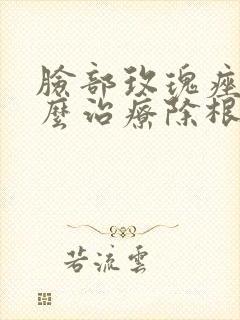 臉部玫瑰痤
麼治療除根
若流雲